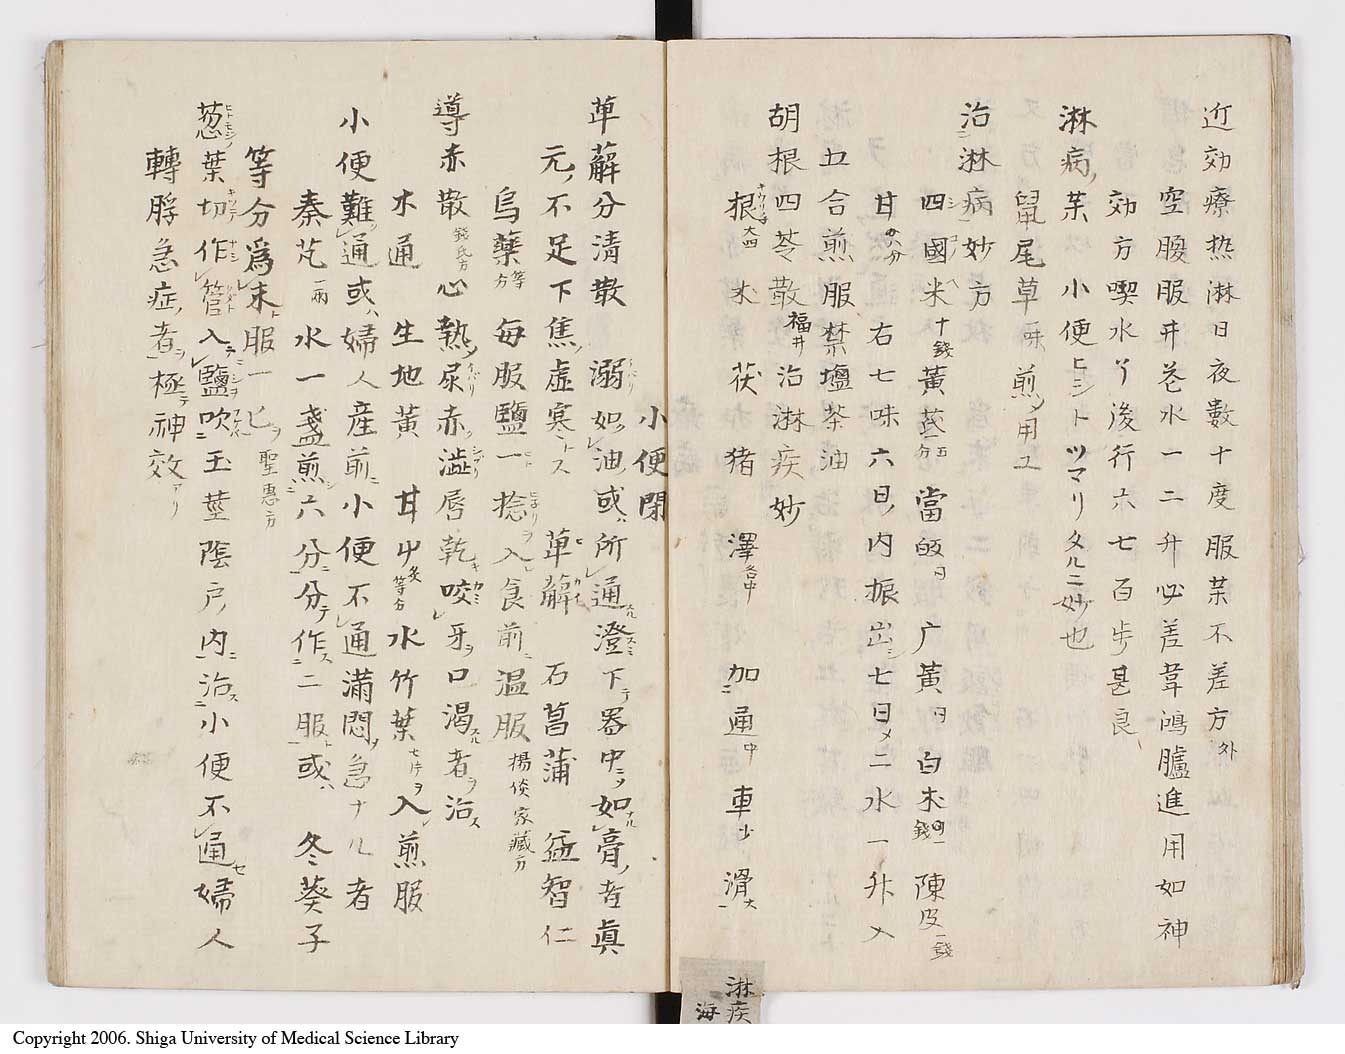 近効療热淋日夜數十度服茱不差方 外
空腹服井苍水一二升必差韋鴻臚進用如神
効方喫水丫後行六七百步甚良
淋病ノ茱 小便ヒシトツマリタルニ妙也
鼠尾草一味煎ノ用エ
治淋病妙方
四國米十錢 黃芩五分 當皈 广黃 白朮 陳皮一錢
甘 右七味六日ノ内振出シ七日メ二水一升入
五合煎服禁塩茶油
胡根四苓散 福井 治淋疾妙
根大四 朮 茯 猪 澤各中 加 通中 車少 滑大
淋疾
海
小便閉
萆薢分清散 溺如油或ハ所通澄下テ器中ニ如膏ノ者眞
元ノ不足下焦ノ虚寒トス 萆薢 石菖蒲 益智仁
烏藥等方 每服鹽一捻入食前ニ温服 楊倓家藏方
導赤散錢氏方 心熱ノ尿赤ク澁唇乾咬牙ヲ口渴者ヲ治ス
木通 生地黃 甘艸炙等方 水竹葉七片ヲ入煎服
小便難通或ハ婦人産前ニ小便不通滿悶ヲ急ナル者
秦艽一兩 水一盞煎六分ニ分テ作二服ト或ハ 冬葵子
等分爲末ト服一匕ヲ 聖惠方
葱葉切作管入鹽吹玉莖陰戸ノ内ニ治ス小便不通婦人
轉脬急症ノ者ヲ極テ神效アリ
Copyright 2006. Shiga University of Medical Science Library